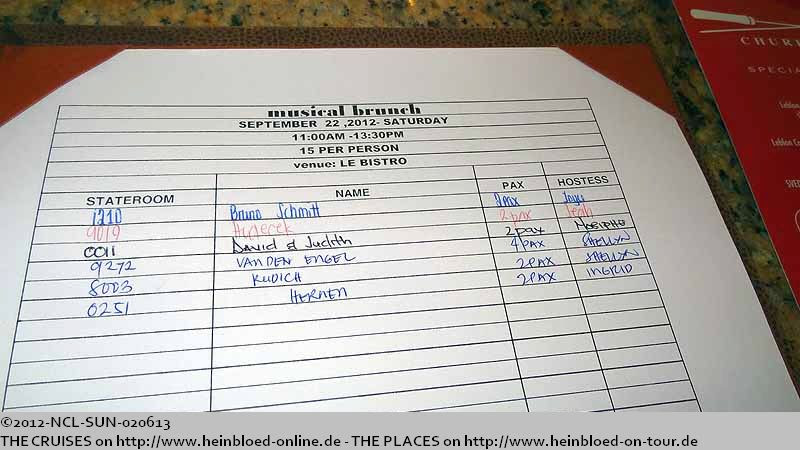 musical brunch
SEPTEMBER 22 ,2012- SATURDAY
11:00AM -13:30PM
15 PER PERSON
venue: LE BISTRO
STATEROOM NAME PAX HOSTESS
1210 Bruno Schmitt 2pax Joyu
9019 2pax Leah
0011 David & Judith 2pax
9272 VAN DEN ENGEL 4pax SHELLYN
8003 RUDICH 2PAX SHELLYN
0251 HERNEN 2PAX INGRID
CHURR
SPECIA
Leblon
Leblon Ca
SVED
©2012-NCL-SUN-020613
THE CRUISES on http://www.heinbloed-online.de - THE PLACES on http://www.heinbloed-on-tour.de